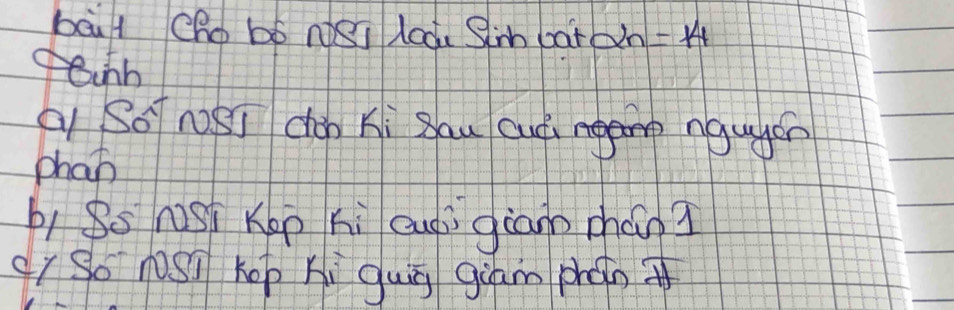 bài 1 Cho bộ NST loài sinh vật 2n = 14
Tính
a/ Số NST đơn kì sau cuối nguyên
phân
b/ Số NST kép kì cuối giảm phân I
c/ Số NST kép kì giữa giảm phân II